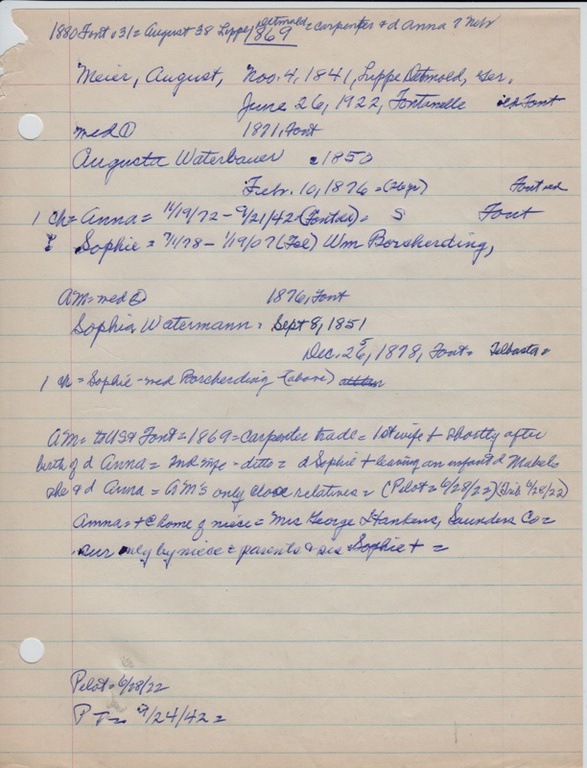 1880 Font 31= August 38 Lippe Detmold = carpenter & d Anna 7 Nebr
1869
Meier, August, Nov. 4, 1841, Lippe Detmold, Ger.
June 26, 1922, Fontanelle Font
med ① 1871, Font
Augusta Waterbauer 1850
Feb. 10, 1876 = (26 yr) Font
1 ch = Anna = 11/19/72 - 9/21/42 (Font) = S Font
Sophie = 7/1/78 - 1/19/07 (Tel) Wm Borcherding,
AM = med ② 1876, Font
Sophia Watermann = Sept 8, 1851
Dec. 26, 1878, Font =
1 ch = Sophie - med Borcherding (above)
AM = to USA Font = 1869 = carpenter trade = 1st wife + shortly after
birth of d Anna = 2nd wife - ditto = d Sophie + leaving an infant d Mabel =
she & d Anna = AM's only close relatives = (Pilot = 6/28/22) (Trib 6/28/22)
Anna = + @ home of niece = Mrs George Hankens, Saunders Co =
sur only by niece = parents & sis Sophie + =
Pilot = 6/28/22
P T = 9/24/42 =